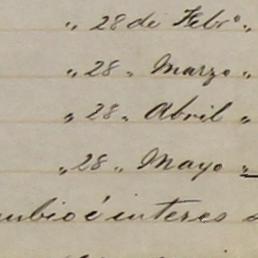 „ 28 de Febro „
„ 28 „ Marzo „
„ 28 „ Abril „
„ 28 „ Mayo „
mbio é interes